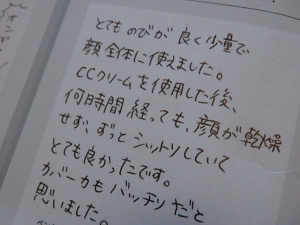 とてものびが良く少量で
顔全体に使えました。
CCクリームを使用した後、
何時間経っても、顔が乾燥
せず、ずっとシットリしていて
とても良かったです。
カバー力もバッチリだと
思いました。